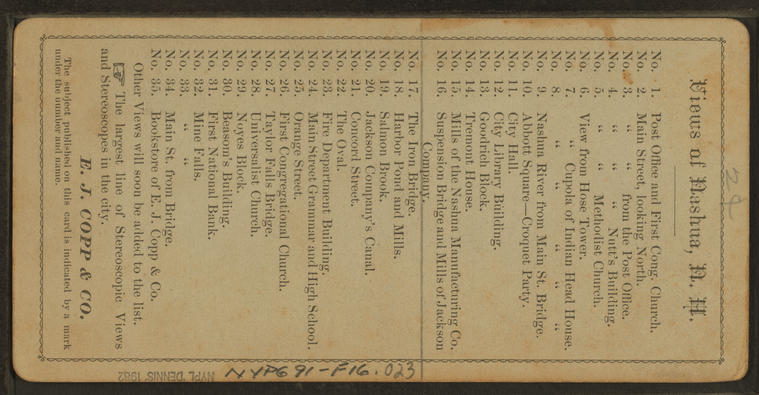 Views of Nashua, N. H.
No. 1. Post Office and First Cong. Church.
No. 2. Main Street, looking North.
No. 3. “ “ from the Post Office.
No. 4. “ “ “ Nutt's Building.
No. 5. “ “ Methodist Church.
No. 6. View from Hose Tower.
No. 7. “ “ Cupola of Indian Head House.
No. 8. “ “ “ “ “ “
No. 9. Nashua River from Main St. Bridge.
No. 10. Abbott Square—Croquet Party.
No. 11. City Hall.
No. 12. City Library Building.
No. 13. Goodrich Block.
No. 14. Tremont House.
No. 15. Mills of the Nashua Manufacturing Co.
No. 16. Suspension Bridge and Mills of Jackson
Company.
No. 17. The Iron Bridge.
No. 18. Harbor Pond and Mills.
No. 19. Salmon Brook.
No. 20. Jackson Company's Canal.
No. 21. Concord Street.
No. 22. The Oval.
No. 23. Fire Department Building.
No. 24. Main Street Grammar and High School.
No. 25. Orange Street.
No. 26. First Congregational Church.
No. 27. Taylor Falls Bridge.
No. 28. Universalist Church.
No. 29. Noyes Block.
No. 30. Beasom's Building.
No. 31. First National Bank.
No. 32. Mine Falls.
No. 33. “ “
No. 34. Main St. from Bridge.
No. 35. Bookstore of E. J. Copp & Co.
Other Views will soon be added to the list.
☞ The largest line of Stereoscopic Views
and Stereoscopes in the city.
E. J. COPP & CO.
The subject published on this card is indicated by a mark
under the number and name.
NYPG91-F16.023
NYPL 'DENNIS' 1982